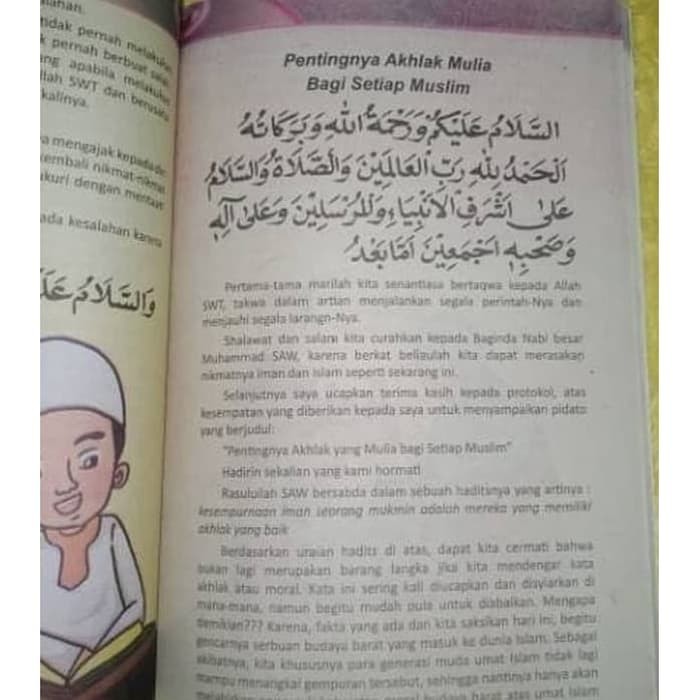 alahan.
tidak pernah melakukan
k pernah berbuat salah
ng apabila melakukan
llah SWT dan berusaha
kalinya.
a mengajak kepada diri
embali nikmat-nikmat
kuri dengan mentaati
ada kesalahan karena
وَالسَّلَامُ عَلَ
Pentingnya Akhlak Mulia
Bagi Setiap Muslim
السَّلَامُ عَلَيْكُمْ وَرَحْمَةُ اللهِ وَبَرَكَاتُهُ
اَلْحَمْدُ لِلّٰهِ رَبِّ الْعَالَمِيْنَ وَالصَّلَاةُ وَالسَّلَامُ
عَلَى اَشْرَفِ الْاَنْبِيَاءِ وَالْمُرْسَلِيْنَ وَعَلَى آلِهِ
وَصَحْبِهِ اَجْمَعِيْنَ اَمَّا بَعْدُ
Pertama-tama marilah kita senantiasa bertaqwa kepada Allah
SWT, takwa dalam artian menjalankan segala perintah-Nya dan
menjauhi segala larangn-Nya.
Shalawat dan salam kita curahkan kepada Baginda Nabi besar
Muhammad SAW, karena berkat beliaulah kita dapat merasakan
nikmatnya iman dan Islam seperti sekarang ini.
Selanjutnya saya ucapkan terima kasih kepada protokol, atas
kesempatan yang diberikan kepada saya untuk menyampaikan pidato
yang berjudul:
"Pentingnya Akhlak yang Mulia bagi Setiap Muslim"
Hadirin sekalian yang kami hormati
Rasulullah SAW bersabda dalam sebuah haditsnya yang artinya :
kesempurnaan iman seorang mukmin adalah mereka yang memiliki
akhlak yang baik
Berdasarkan uraian hadits di atas, dapat kita cermati bahwa
bukan lagi merupakan barang langka jika kita mendengar kata
akhlak atau moral. Kata ini sering kali diucapkan dan disyiarkan di
mana-mana, namun begitu mudah pula untuk diabaikan. Mengapa
demikian??? Karena, fakta yang ada dan kita saksikan hari ini, begitu
gencarnya serbuan budaya barat yang masuk ke dunia Islam. Sebagai
akibatnya, kita khususnya para generasi muda umat Islam tidak lagi
mampu menangkal gempuran tersebut, sehingga nantinya hanya akan
budaya barat atas umat Islam